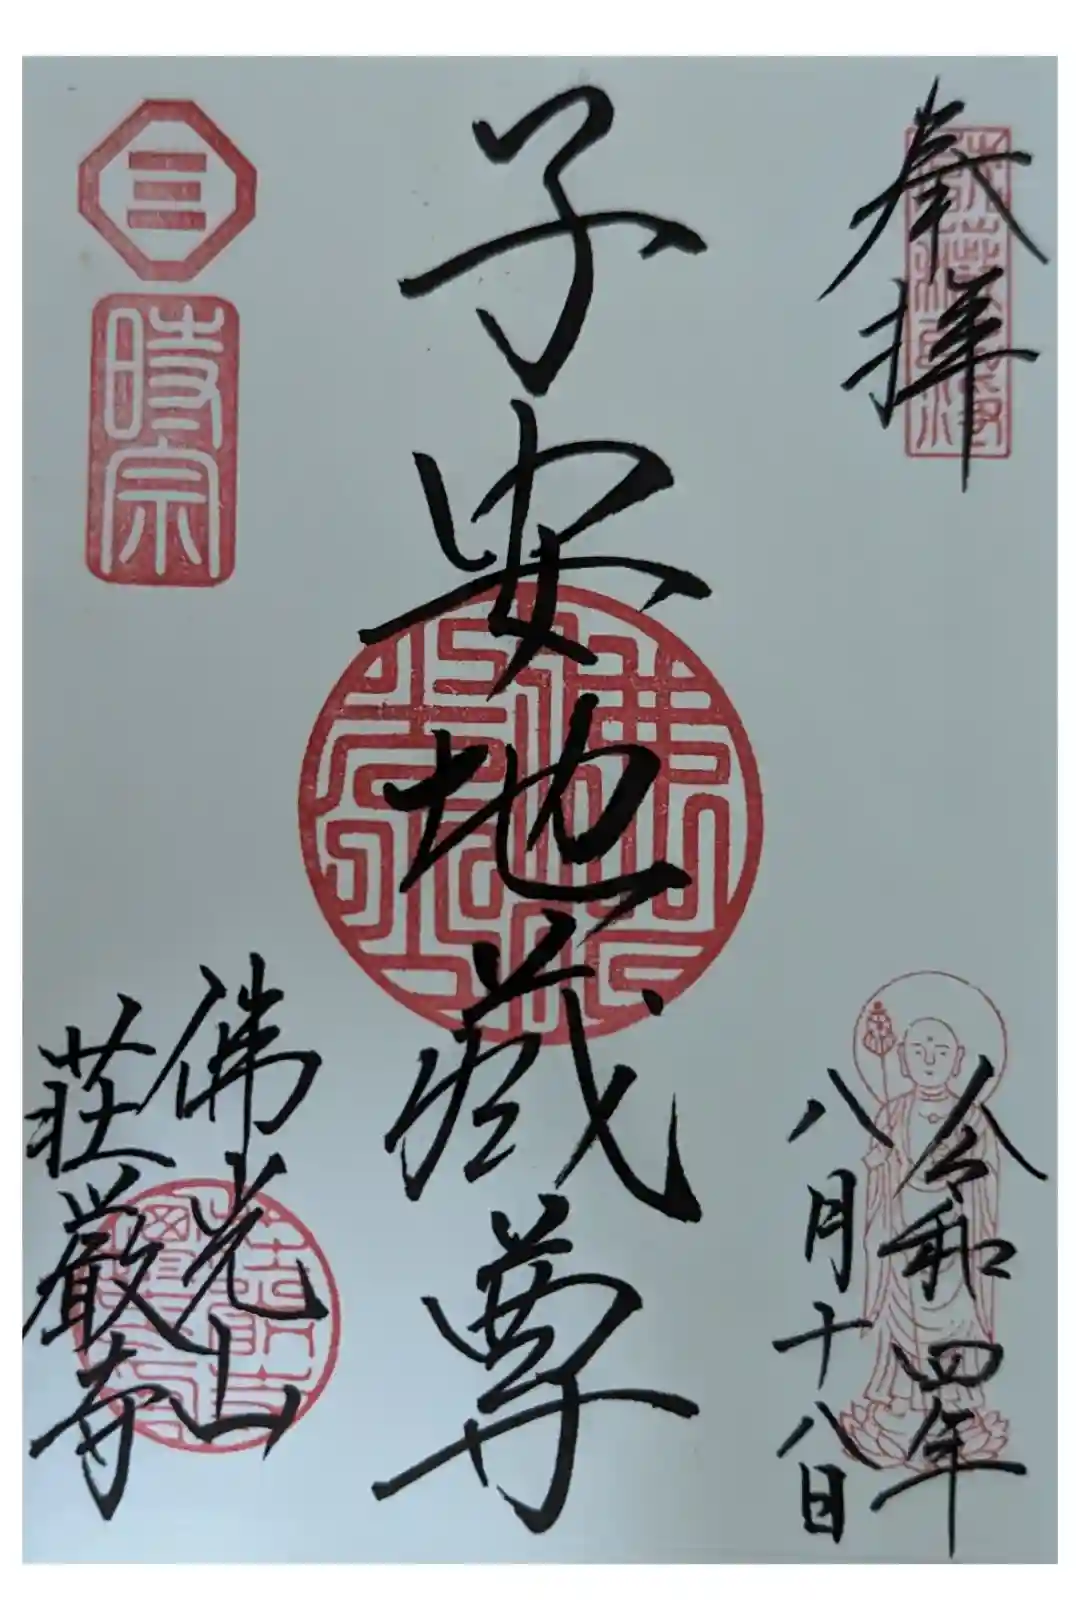 奉拝
令和四年
八月十八日
子安地蔵尊
時宗
佛光山
荘厳寺